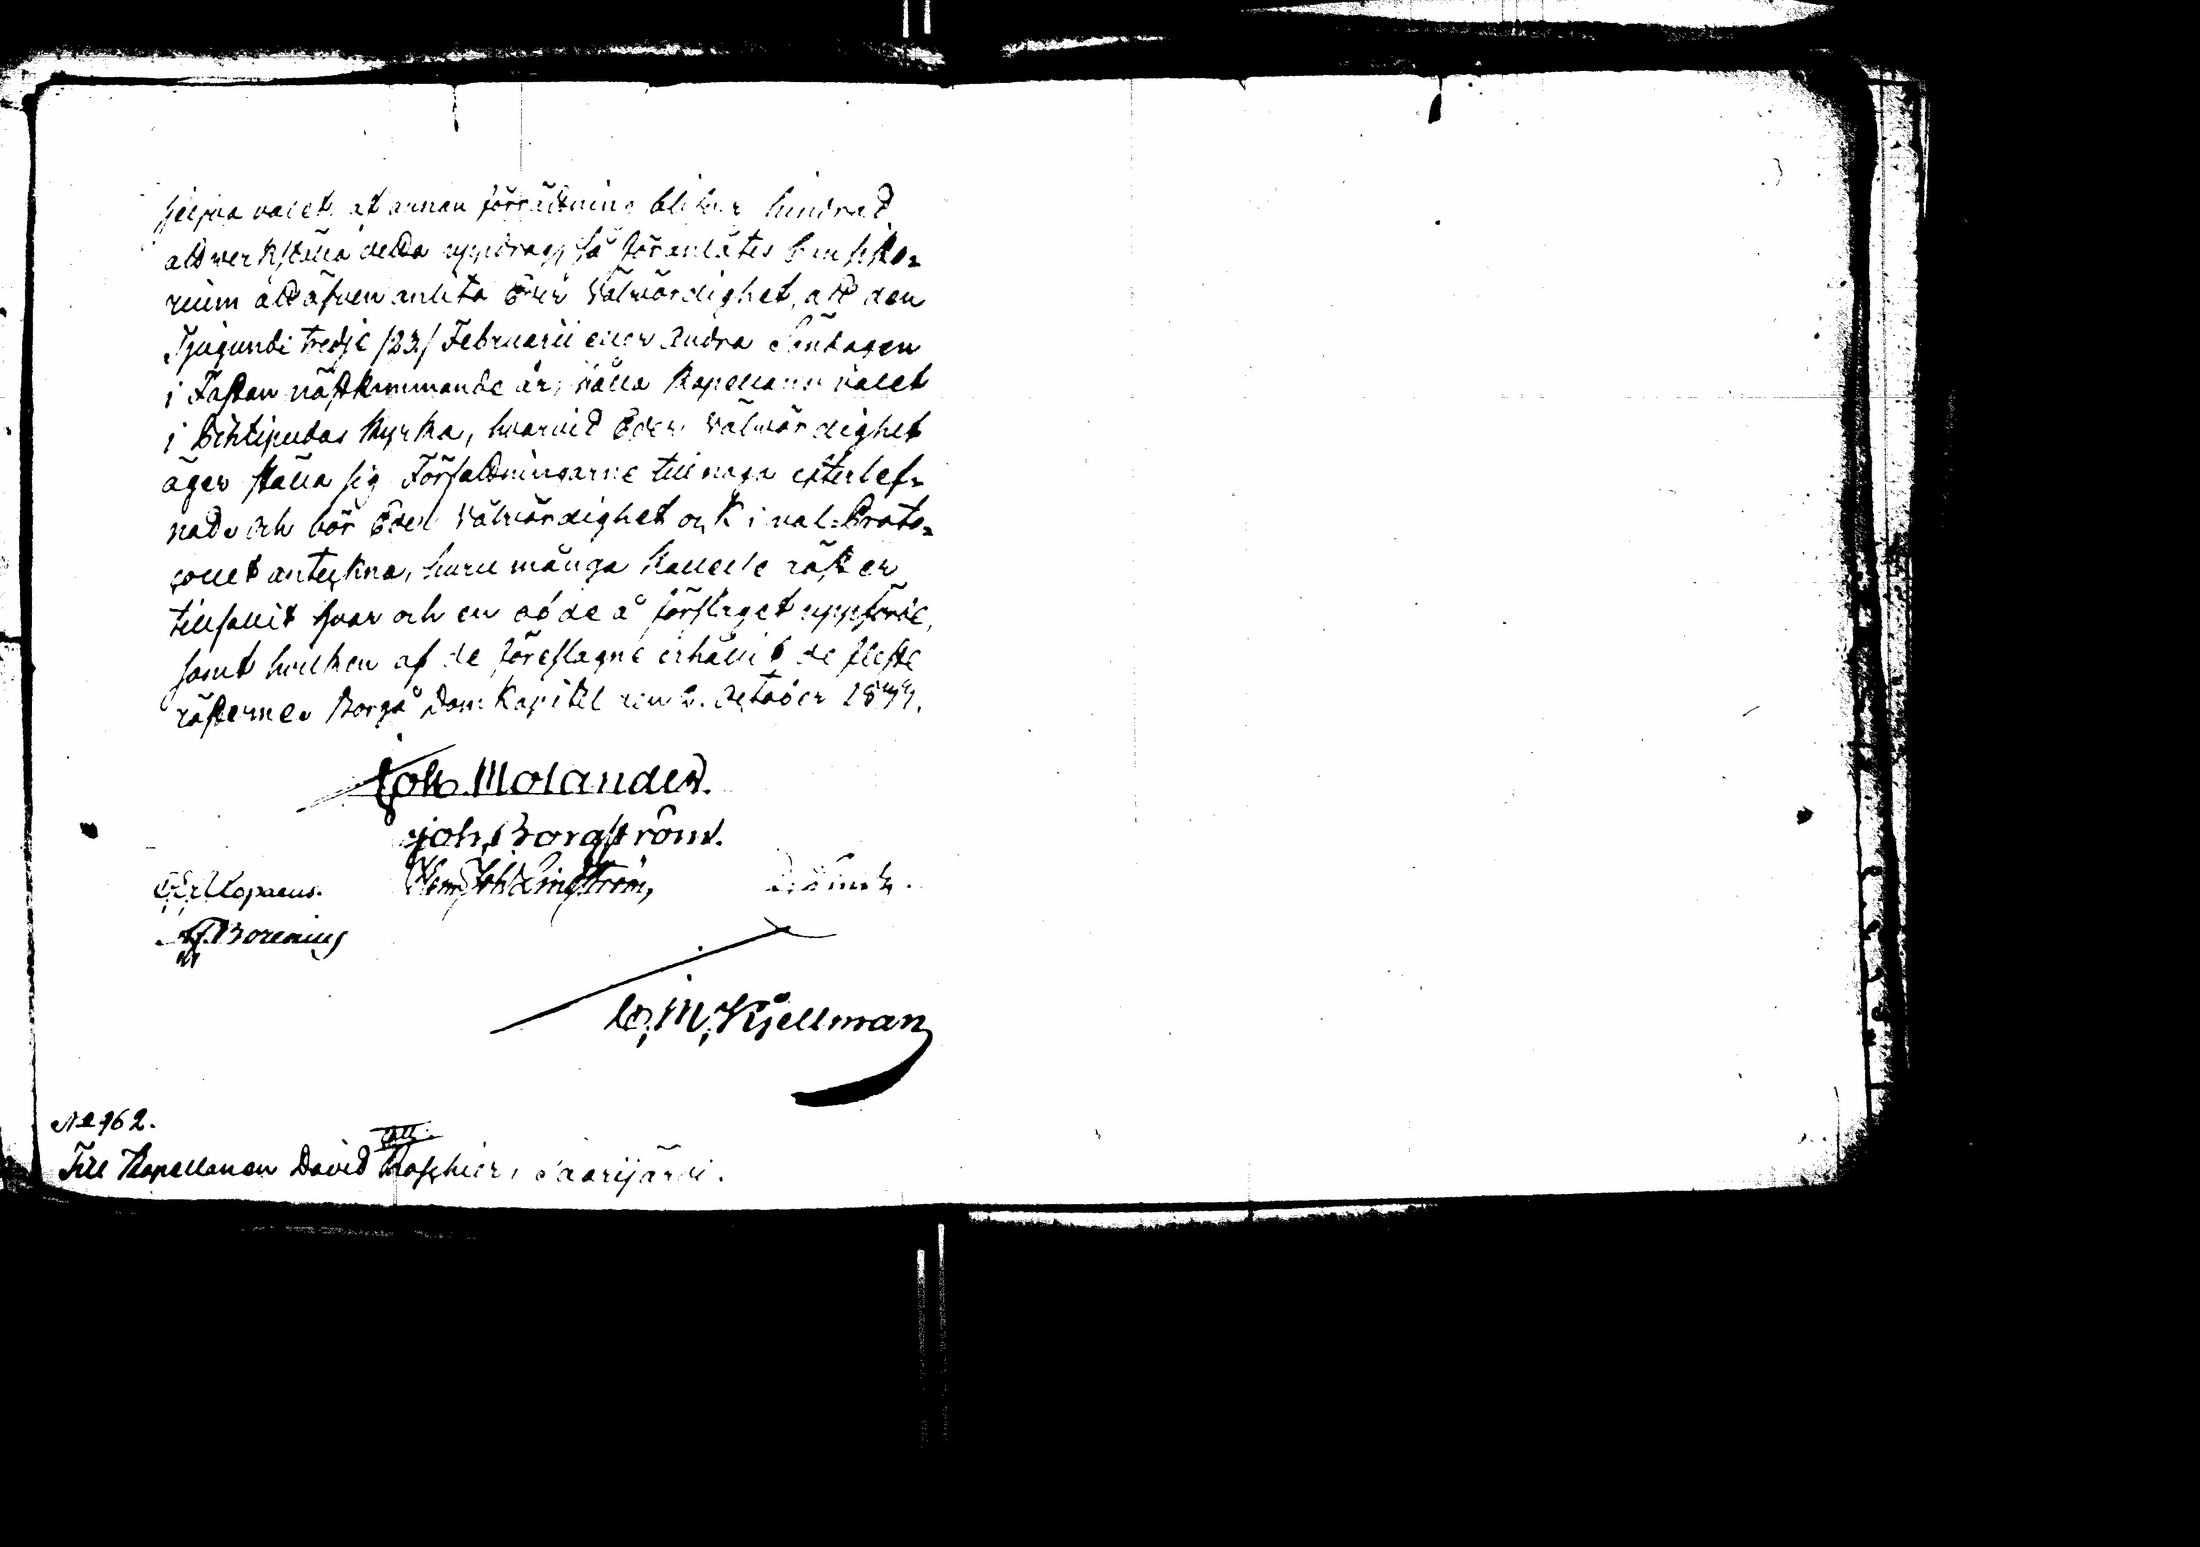 valet, at annan förrättning blifver hindrad
att werkställa detta uppdrag, så föranlåtes Consisto-
rium att äfven anlita Eder Välvördighet, att den
Tjugundi tredje /23/ Februarii eller Andra Söndagen
i Fastan nästkommande år, hålla Kapellans valet
i Pihtipudas Kyrka, hvarvid Eder Välvördighet
äger ställa sig Författningarne till noga efterlef-
nad, och bör Eder Välvördighet ock i val-Proto-
collet anteckna, huru många Kallelse röster
tillfallit hvar och en både å förslaget uppförde,
samt hvilken af de föreslagne erhållit de fleste
rösterne. Borgå Dom-Kapitel den 2. October 1844.
Joh. Molander.
Joh. Borgström.
Alopaeus.
Joh. Lingström,
Borenius
C. M. Kjellman
No 962.
Till Kapellanen David Roschier, Saarijärvi.